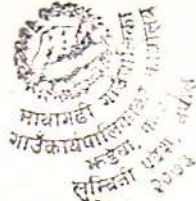 मायागढी गाउँपालिका
गाउँ कार्यपालिकाको कार्यालय
लुम्बिनी प्रदेश, नेपाल
२०७३